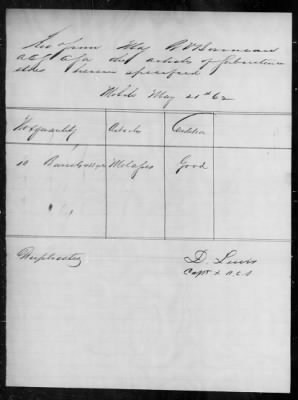 Rec'd from Maj
the articles of Subsistence
stores herein specified
Mobile May 21st 62
No & quantity Articles Condition
10 Barrels Molasses Good
Duplicates
D. Lewis
Capt & A.C.S